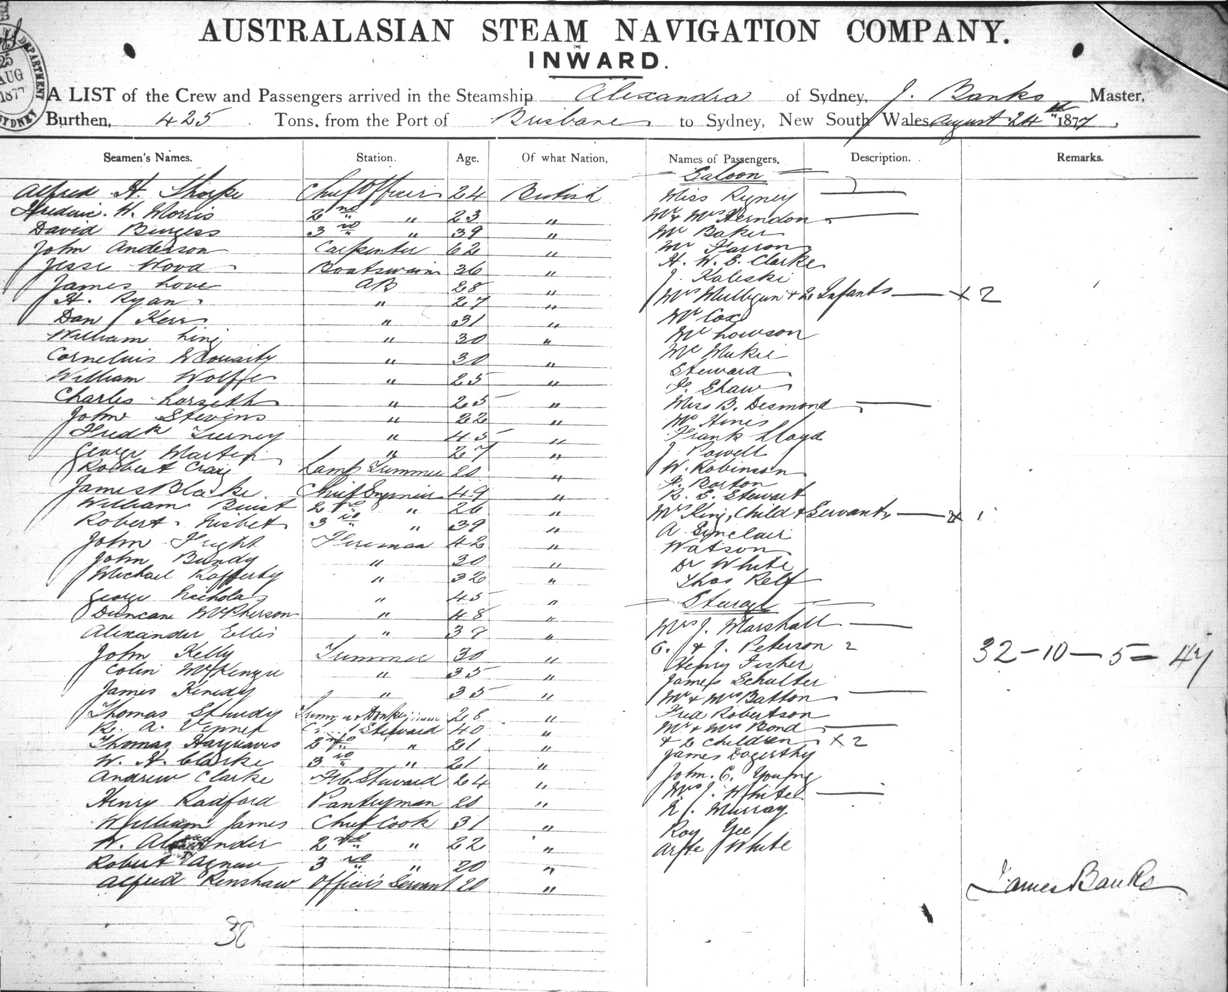 AUSTRALASIAN STEAM NAVIGATION COMPANY.
INWARD.
25
AUG
1877
DEPARTMENT
SYDNEY
A LIST of the Crew and Passengers arrived in the Steamship Alexandra of Sydney, J. Banks Master,
Burthen, 425 Tons, from the Port of Brisbane to Sydney, New South Wales August 24th 1877
Seamen's Names. Station. Age. Of what Nation, Names of Passengers, Description. Remarks.
Saloon
Alfred H. Thorpe Chief Officer 24 British
Frederic W. Morris 2nd " 23 "
David Burgess 3rd " 39 "
John Anderson Carpenter 62 "
Jesse Wood Boatswain 36 "
James Love AB 28 "
H. Ryan " 27 "
Dan Kerr " 31 "
William King " 30 "
Cornelius " 30 "
William Wolffe " 25 "
Charles " 25 "
John Stevens " 22 "
Fredk Tierney " 45 "
George Martin " 27 "
Robert Craig Lamp Trimmer 20 "
James Blackie Chief Engineer 49 "
William Buist 2nd " 26 "
Robert Nisbet 3rd " 39 "
John Fright Fireman 42 "
John Bundy " 30 "
Michael Rafferty " 32 "
George Nicholas " 45 "
Duncan McPherson " 48 "
Alexander Ellis " 37 "
John Kelly Trimmer 30 "
Colin McKenzie " 35 "
James Kenedy " 35 "
Thomas 28 "
R. A. Steward 40 "
Thomas Hargraves 2nd " 21 "
W. H. Clarke 3rd " 21 "
Andrew Clarke F.C. Steward 24 "
Henry Radford Pantryman 20 "
William James Chief Cook 31 "
W. Alexander 2nd " 22 "
Robert Agnew 3rd " 20 "
Alfred Renshaw Officers Servant 20 "
38
Miss
Mr & Mrs Herndon
Mr Baker
Mr Farron
H. W. E. Clarke
J. Kaleski
Mrs Mulligan & 2 Infants x 2
Mr Cox
Mr Lowson
Mr
Steward
F. Shaw
Miss B. Desmond
Mr Hines
Frank Lloyd
J. Powell
W. Robinson
F. Barton
R. E. Stewart
Mrs King, Child & Servant x 1
A. Sinclair
Watson
Dr White
Thos Relf
Steerage
Mrs J. Marshall
C. & J. Peterson 2
Henry Fisher
James Schulter
Mr & Mrs Batton
Fred Robertson
Mr & Mrs Bond
& 2 children x 2
James Dogerthy
John C. Young
Mrs J. White
R. Murray
Roy Gee
White
32 - 10 - 5 = 47
James Banks